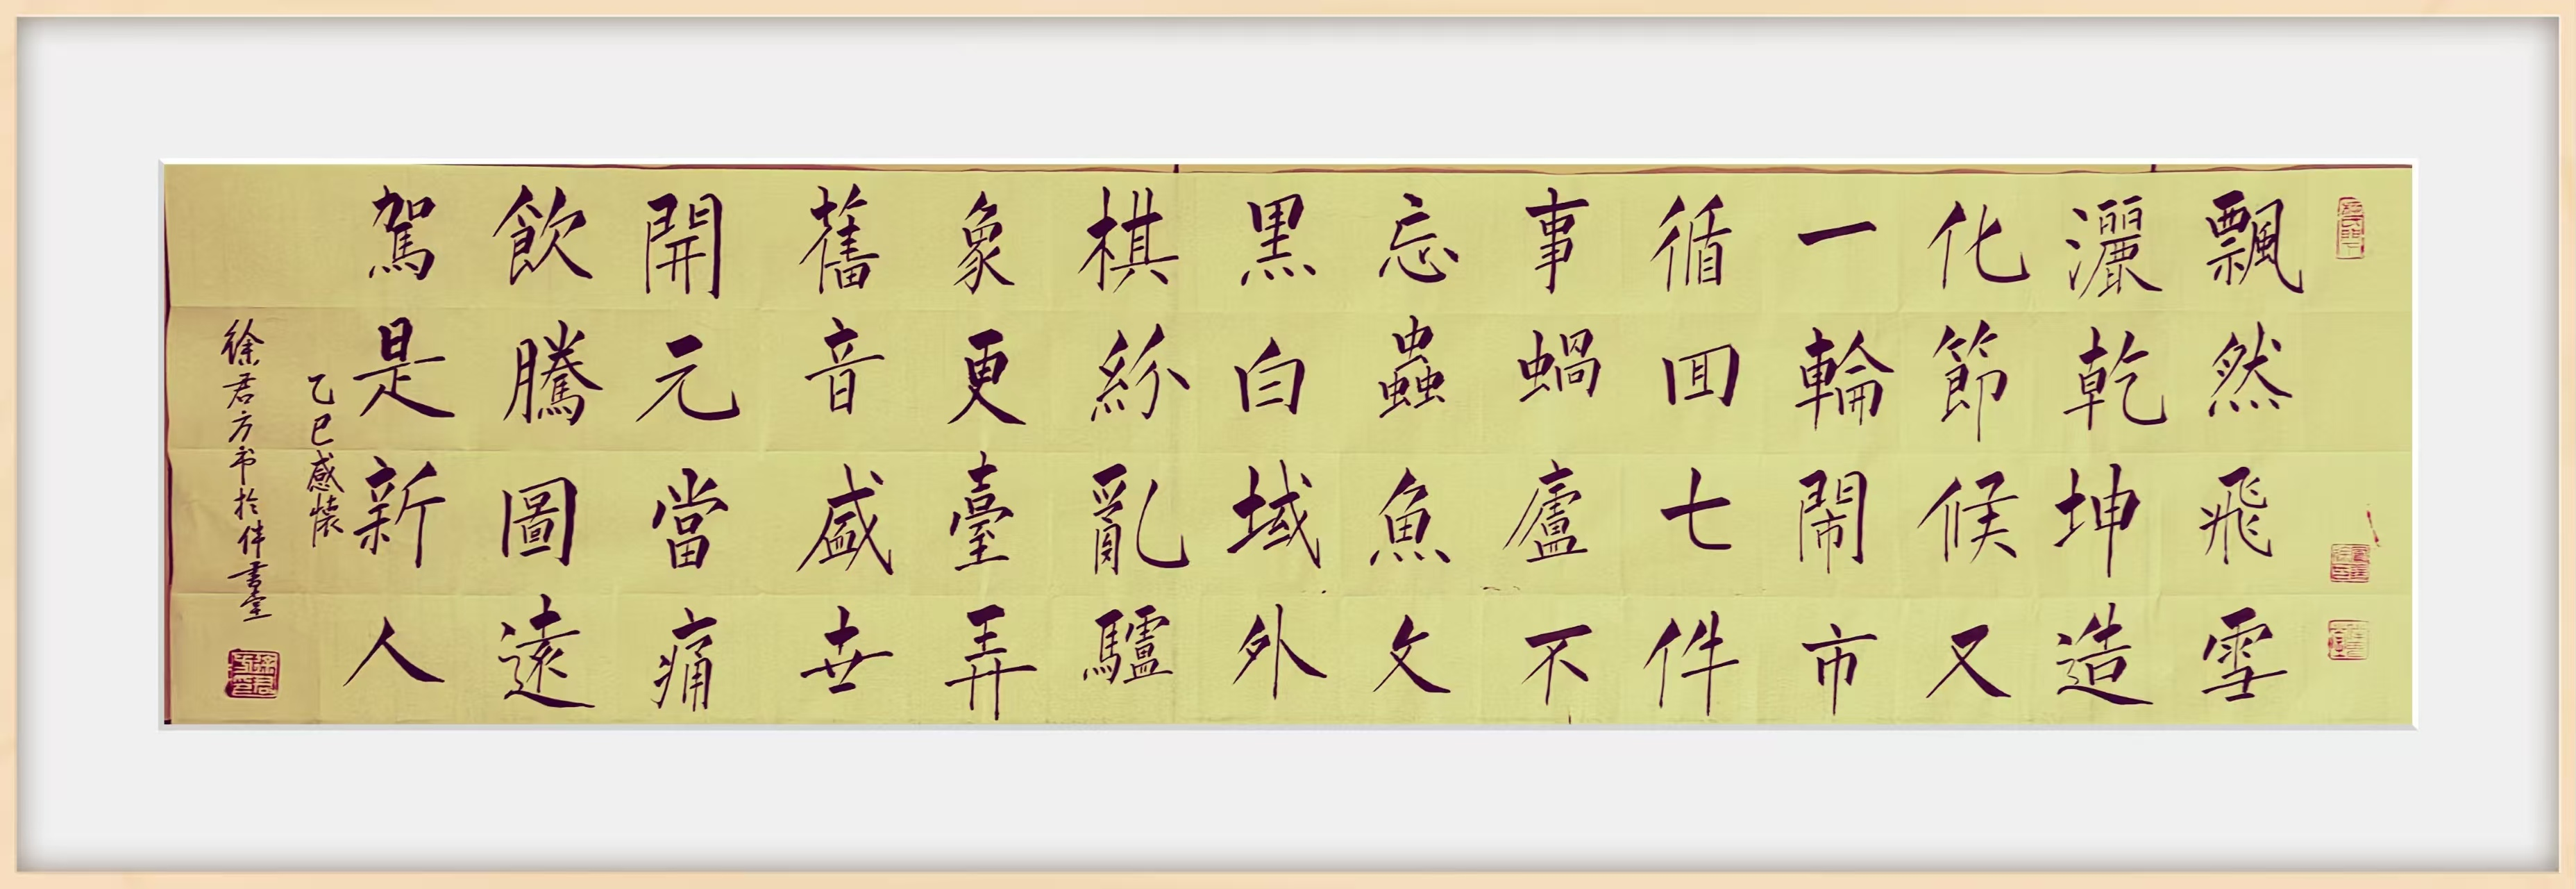 飄然飛雪
灑乾坤造
化節候又
一輪鬧市
循囬七件
事蝸廬不
忘蟲魚文
黑白域外
棋紛亂驢
象更臺弄
舊音盛世
開元當痛
飲騰圖遠
駕是新人
乙巳感懷
徐君方书於伴書堂